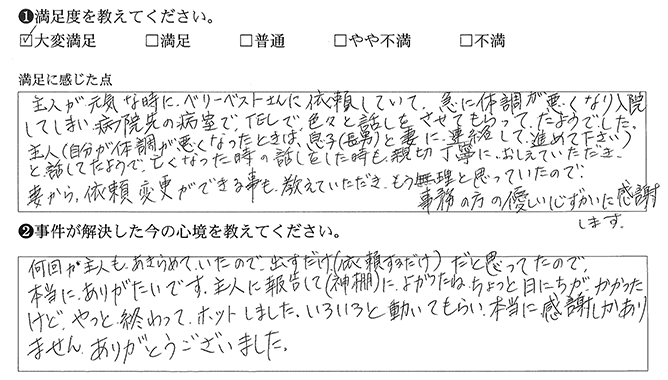 ❶満足度を教えてください。
☑大変満足 □満足 □普通 □やや不満 □不満
満足に感じた点
主人が元気な時に、ベリーベストさんに依頼していて、急に体調が悪くなり入院
してしまい病院先の病室で、TELで、色々と話しをさせてもらってたようでした。
主人(自分が体調が悪くなったときは、息子(長男)と妻に、連絡して、進めて下さい)
と、話してたようで、亡くなった時の話しをした時も、親切丁寧に、おしえていただき、
妻から、依頼変更ができる事も、教えていただき、もう無理と思っていたので、
事務の方の優しい心ずかいに感謝
します。
❷事件が解決した今の心境を教えてください。
何回か主人も、あきらめて、いたので、出すだけ(依頼するだけ)だと思ってたので、
本当に、ありがたいです。主人に報告して(神棚)に、よかったね、ちょっと日にちが、かかった
けど、やっと終わって、ホットしました。いろいろと動いてもらい、本当に感謝しかあり
ません。ありがとうございました。